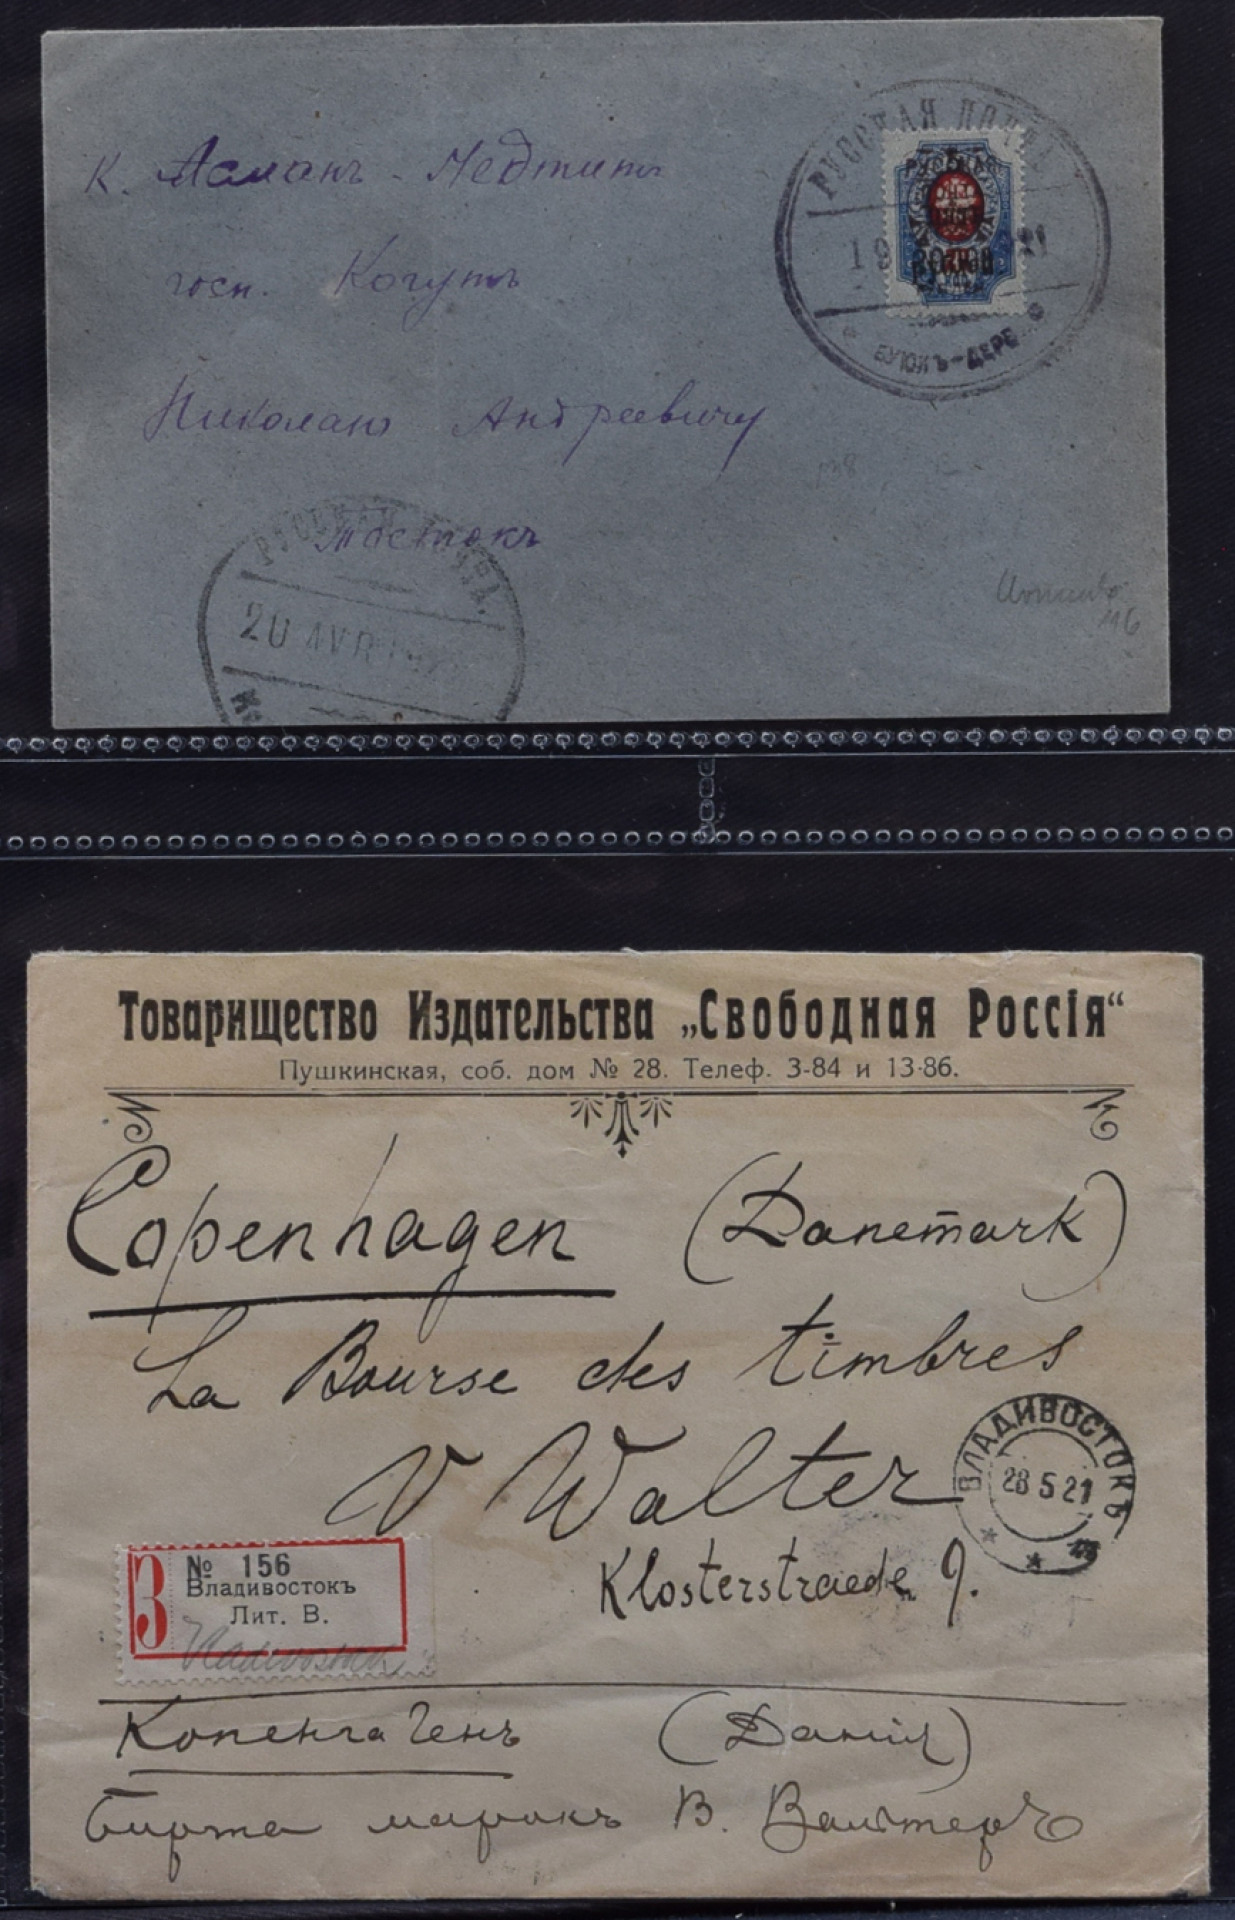 К. Асманъ - Медтитъ
госп. Когутъ
Николаю Андреевичу
РУССКАЯ ПОЧТА
19
РУБЛЕЙ
БУЮКЪ-ДЕРЕ
РУССКАЯ
20 AVR 192
116
Товарищество Издательства „Свободная Россія“
Пушкинская, соб. дом № 28. Телеф. 3-84 и 13-86.
Copenhagen (Danemark)
La Bourse des timbres
V Walter
Klosterstraede 9.
ВЛАДИВОСТОКЪ
28 5 21
З № 156
Владивостокъ
Лит. В.
Vladivostok
Копенгагенъ (Данія)
Биржа марокъ В. Вальтеръ